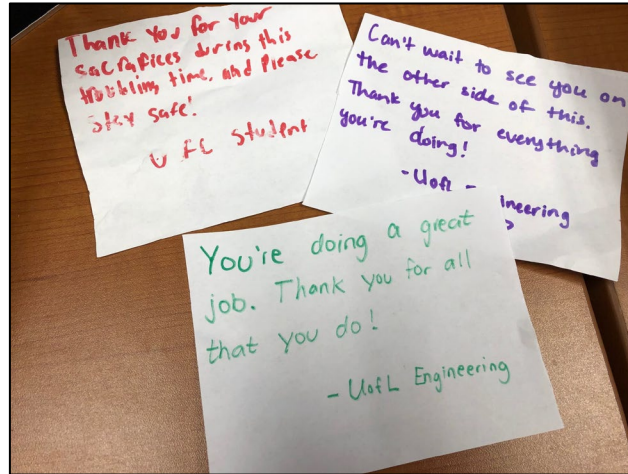 Thank You for Your
sacrafices during this
troubling time, and Please
Stay safe!
U FL student
Can't wait to see you on
the other side of this.
Thank you for everything
you're doing!
-UofL -
ineering
You're doing a great
job. Thank you for all
that you do!
- UofL Engineering